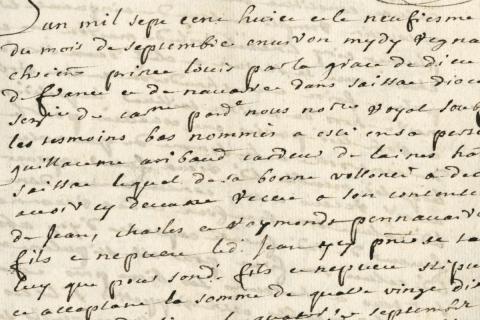 Lan mil sept cent huict et le neufiesme
du mois de septembre environ mydy regna
chrestien prince Louis par la grace de dieu
de france et de navarre dans saissac dioc
senne de carne pard.e nous no.re royal sou
les tesmoins bas nommes a esté en sa pers
guillaume aribaud cardeur de laines ha
saissac lequel de sa bonne vollonté a dec
avoir cy devant receu a son contente
de Jean, charles et Raymonds pennavaire
fils et nepveu led. Jean icy pnt se
luy que pour sond. fils et nepveu stipu
et acceptant la somme de quatre vingt di
septembre